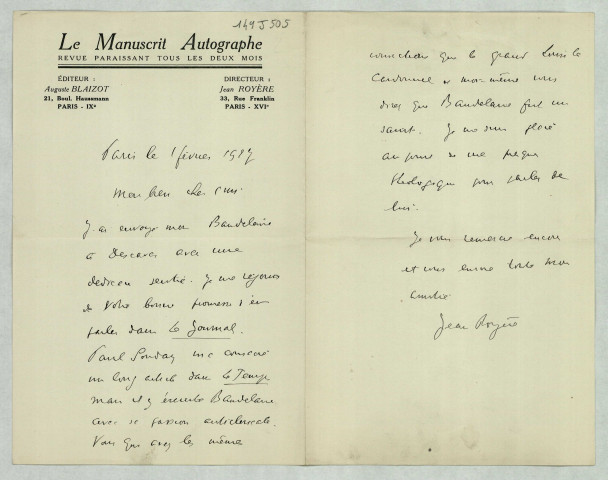 149 J 505
Le Manuscrit Autographe
REVUE PARAISSANT TOUS LES DEUX MOIS
ÉDITEUR :
Auguste BLAIZOT
21, Boul. Haussmann
PARIS - IXe
DIRECTEUR :
Jean ROYÈRE
33, Rue Franklin
PARIS - XVIe
Paris le 1 février 1927
Mon bien cher ami
J'ai envoyé mon Baudelaire
à Descaves avec une
dédicace sentie. Je me réjouis
de votre bonne promesse d'en
parler dans Le Journal.
Paul Souday m'a consacré
un long article dans Le Temps
mais il y éreinte Baudelaire
avec sa passion anticléricale.
Vous qui avez les mêmes
conviction que le grand Louis le
Cardonnel et moi-même vous
direz que Baudelaire fut un
saint. Je me suis placé
au point de vue presque
théologique pour parler de
lui.
Je vous remercie encore
et vous envoie toute mon
amitié
Jean Royère